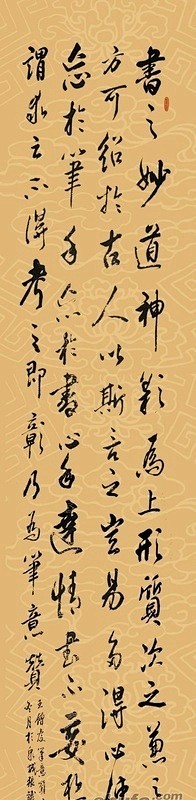 書之妙道神彩為上形質次之兼
方可紹於古人以斯言之豈易多得必使
忘於筆手忘於書心手達情書不妄想
謂求之不得考之即彰乃為筆意贊
王僧虔筆意贊